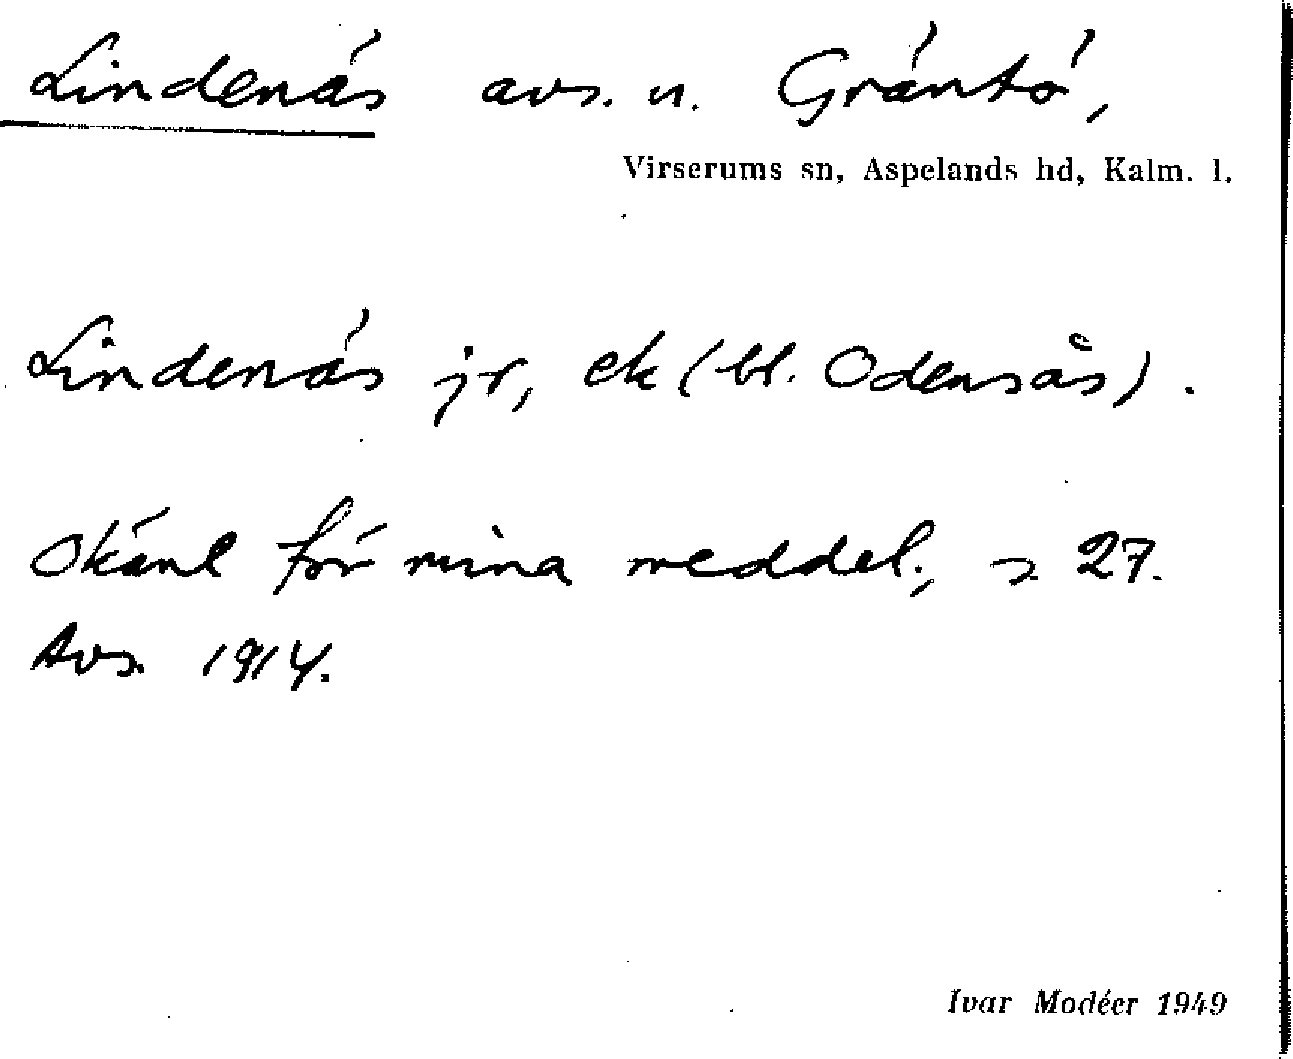 Lindenäs avs. u. Gräntö,
Virserums sn, Aspelands hd, Kalm. l.
Lindenäs jr, ek (bl. Odensås).
Okänt för mina meddel., 27.
Avs. 1914.
Ivar Modéer 1949